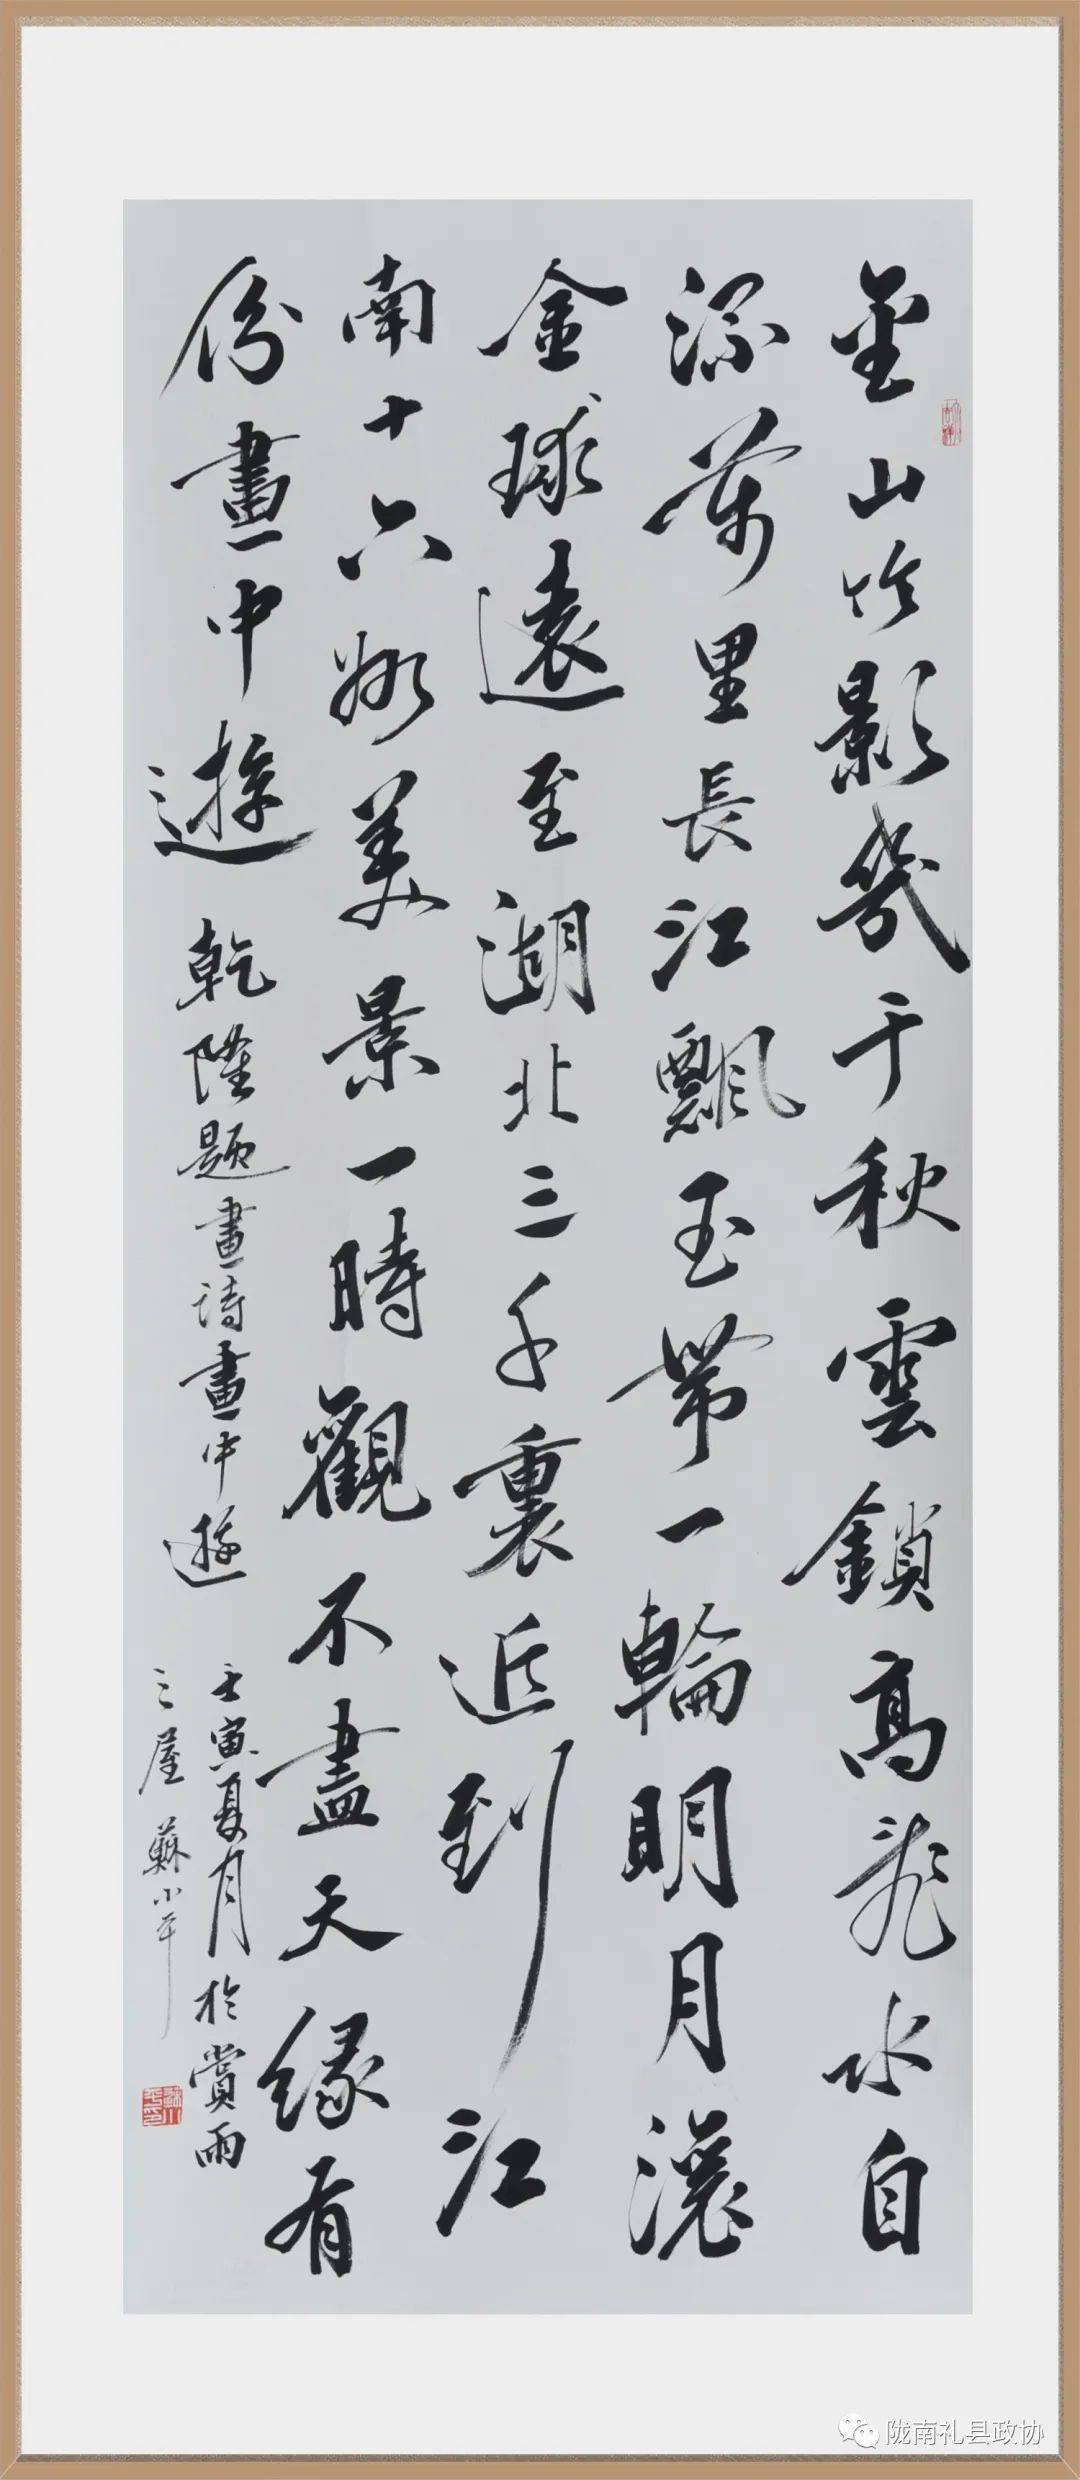 金山竹影幾千秋雲鎖高飛水自
流萬里長江飄玉帶一輪明月滾
金球遠至湖北三千裏近到江
南十六州美景一時觀不盡天緣有
份畫中遊 乾隆題畫詩畫中遊
壬寅夏月於賞雨
之屋 蘇小平
陇南礼县政协